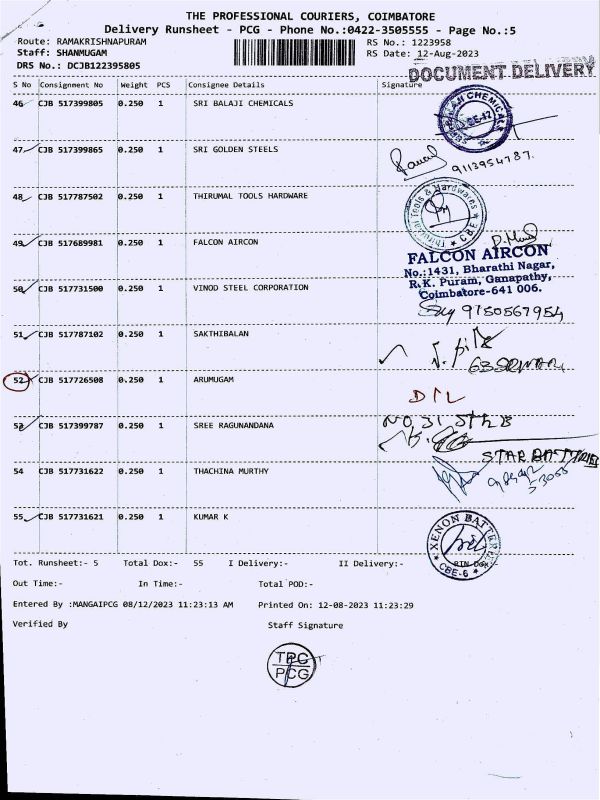 THE PROFESSIONAL COURIERS, COIMBATORE
Delivery Runsheet - PCG - Phone No.:0422-3505555 - Page No.:5
Route: RAMAKRISHNAPURAM RS No.: 1223958
Staff: SHANMUGAM RS Date: 12-Aug-2023
DRS No.: DCJB122395805
DOCUMENT DELIVERY
S No Consignment No Weight PCS Consignee Details Signature
46 CJB 517399805 0.250 1 SRI BALAJI CHEMICALS
47 CJB 517399865 0.250 1 SRI GOLDEN STEELS
9113954787.
48 CJB 517787502 0.250 1 THIRUMAL TOOLS HARDWARE
Thirumal Tools & Hardwares
* CBE *
49 CJB 517689981 0.250 1 FALCON AIRCON
FALCON AIRCON
No.:1431, Bharathi Nagar,
R.K. Puram, Ganapathy,
Coimbatore-641 006.
50 CJB 517731500 0.250 1 VINOD STEEL CORPORATION
9150567954
51 CJB 517787102 0.250 1 SAKTHIBALAN
52 CJB 517726508 0.250 1 ARUMUGAM
D/L
53 CJB 517399787 0.250 1 SREE RAGUNANDANA
54 CJB 517731622 0.250 1 THACHINA MURTHY
STAR BATTRIES
55 CJB 517731621 0.250 1 KUMAR K
XENON BATTERIES
* CBE-6 *
Tot. Runsheet:- 5 Total Dox:- 55 I Delivery:- II Delivery:- RTN Dox:-
Out Time:- In Time:- Total POD:-
Entered By :MANGAIPCG 08/12/2023 11:23:13 AM Printed On: 12-08-2023 11:23:29
Verified By Staff Signature
TPC
PCG